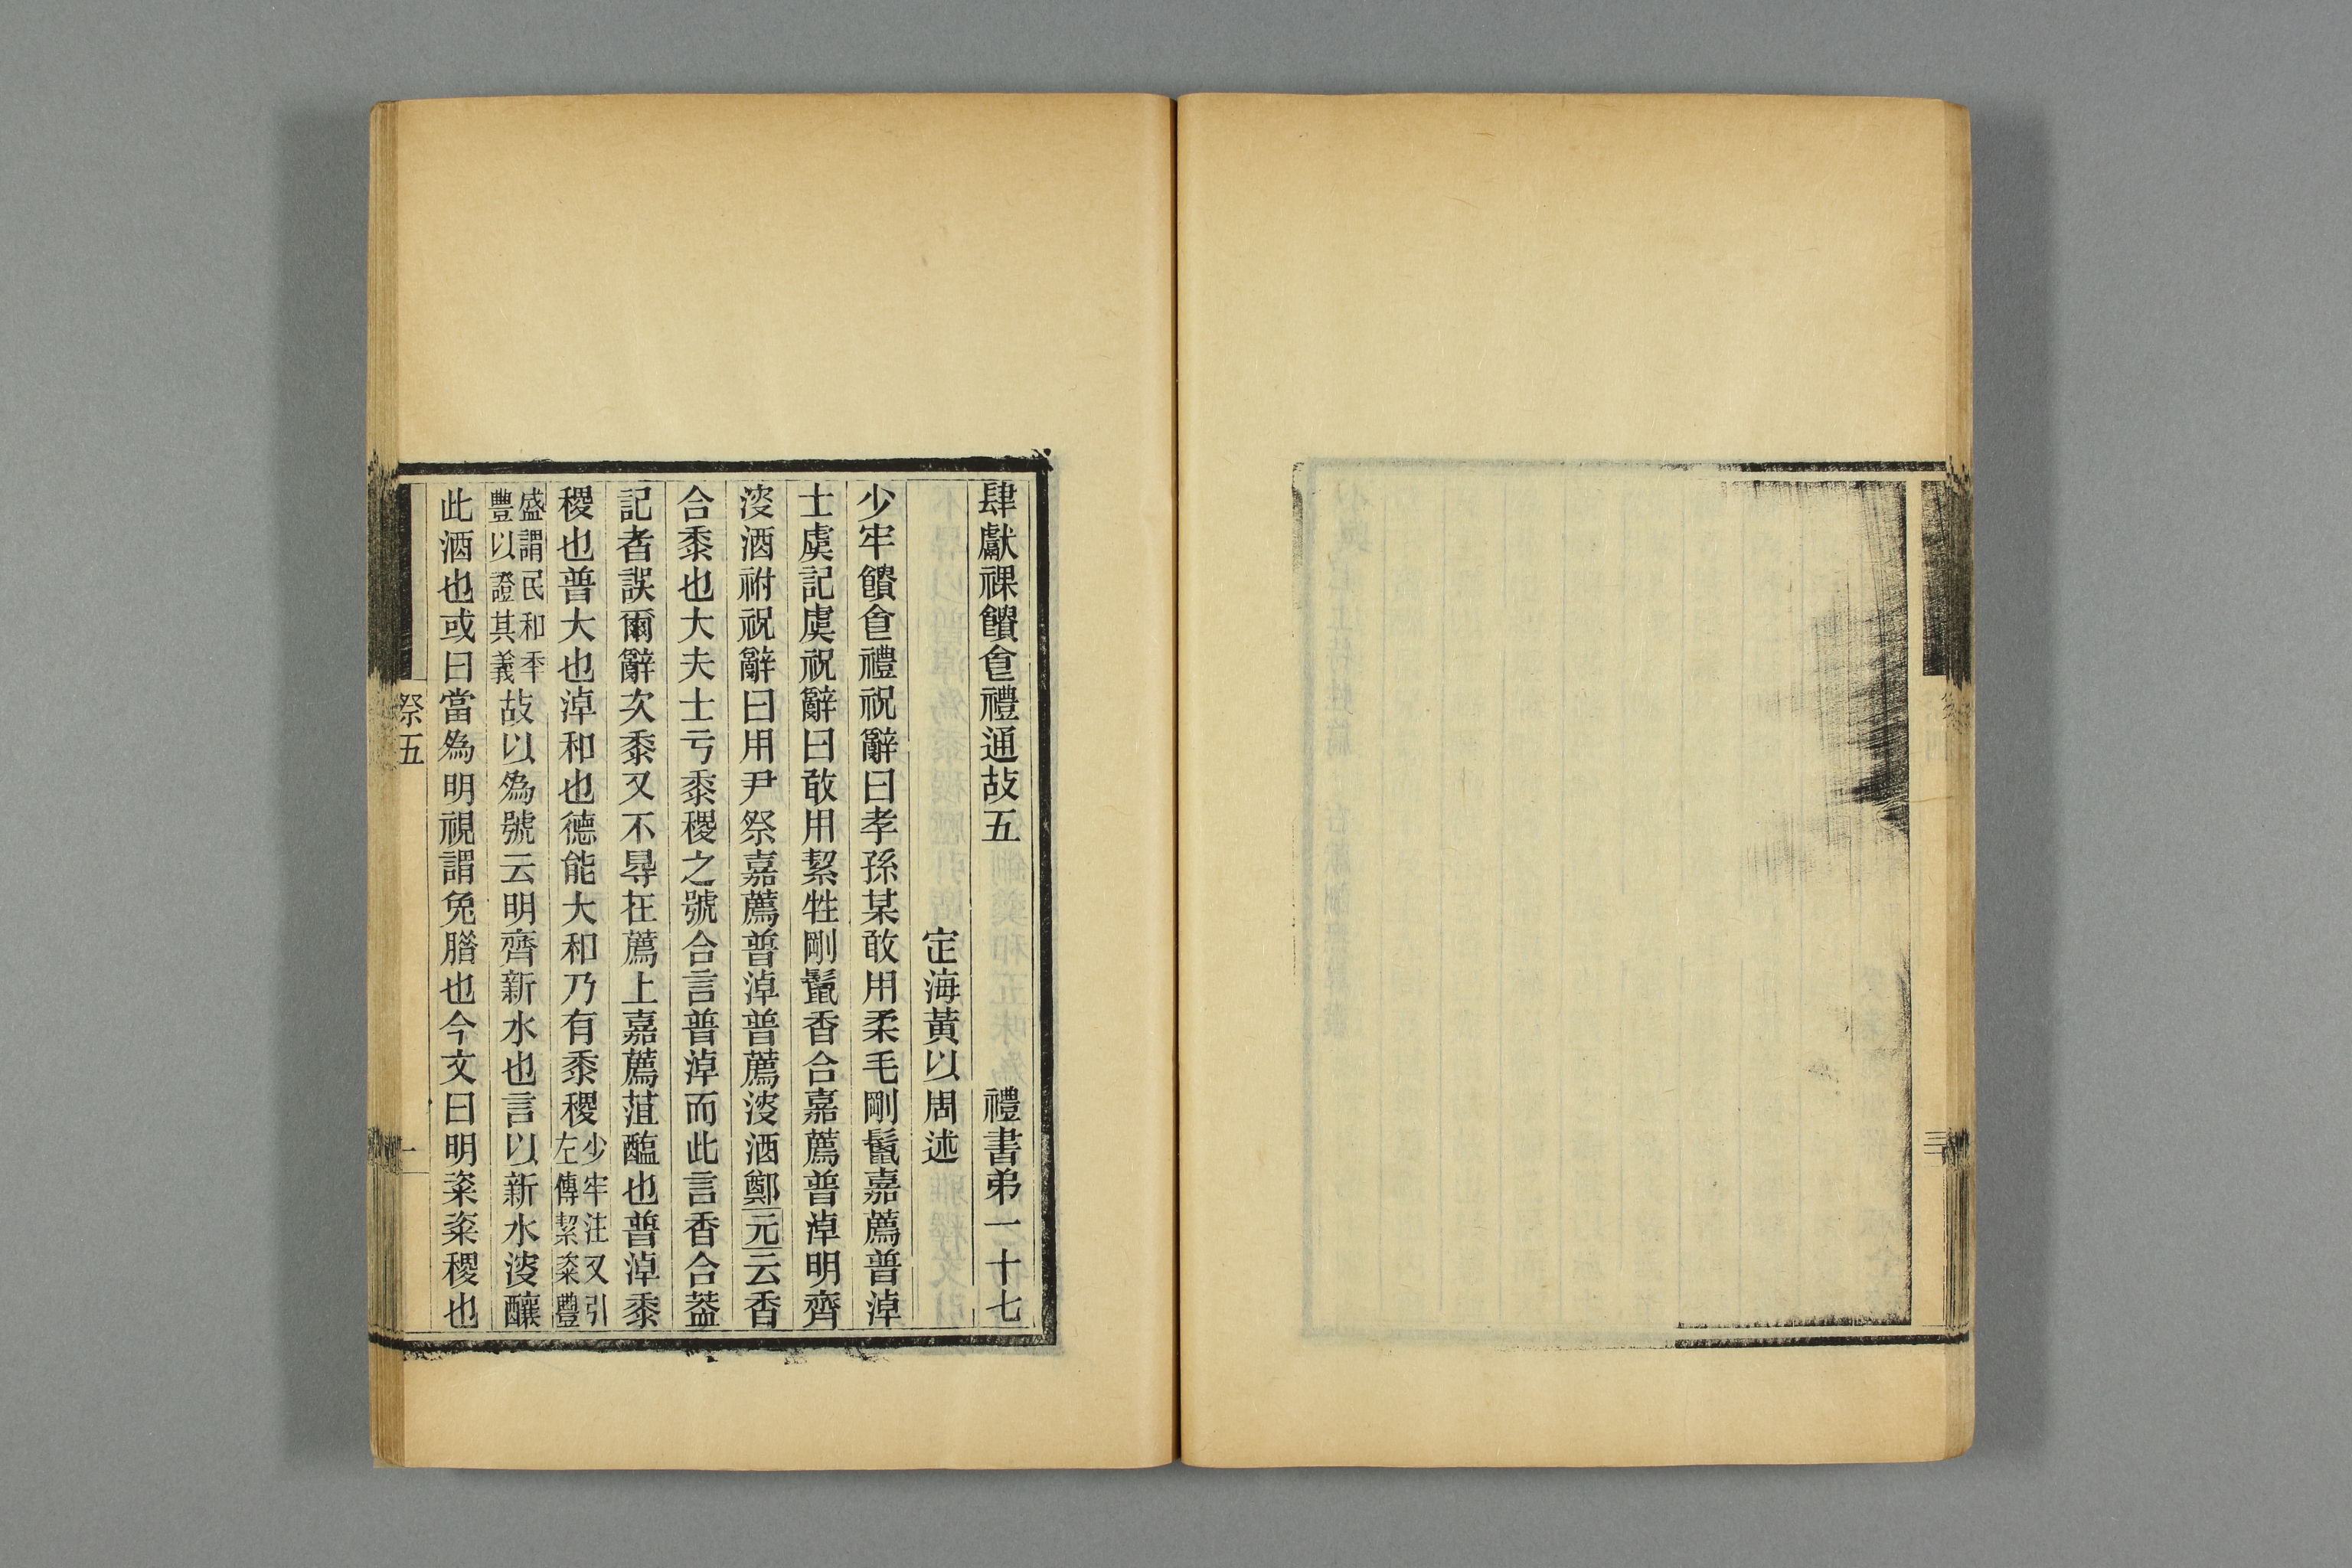 肆獻祼饋𠊊禮通故五　禮書弟一十七
定海黃以周述
少牢饋𠊊禮祝辭曰孝孫某敢用柔毛剛鬣嘉薦普淖
士虞記虞祝辭曰敢用絜牲剛鬣香合嘉薦普淖明齊
溲酒祔祝辭曰用尹祭嘉薦普淖普薦溲酒鄭元云香
合黍也大夫士亏黍稷之號合言普淖而此言香合葢
記者誤爾辭次黍又不㝵在薦上嘉薦菹醢也普淖黍
稷也普大也淖和也德能大和乃有黍稷少牢注又引
左傳絜粢豐
盛謂民和秊
豐以證其義故以爲號云明齊新水也言以新水溲釀
此酒也或曰當爲明視謂兔腊也今文曰明粢粢稷也
祭五
一
三